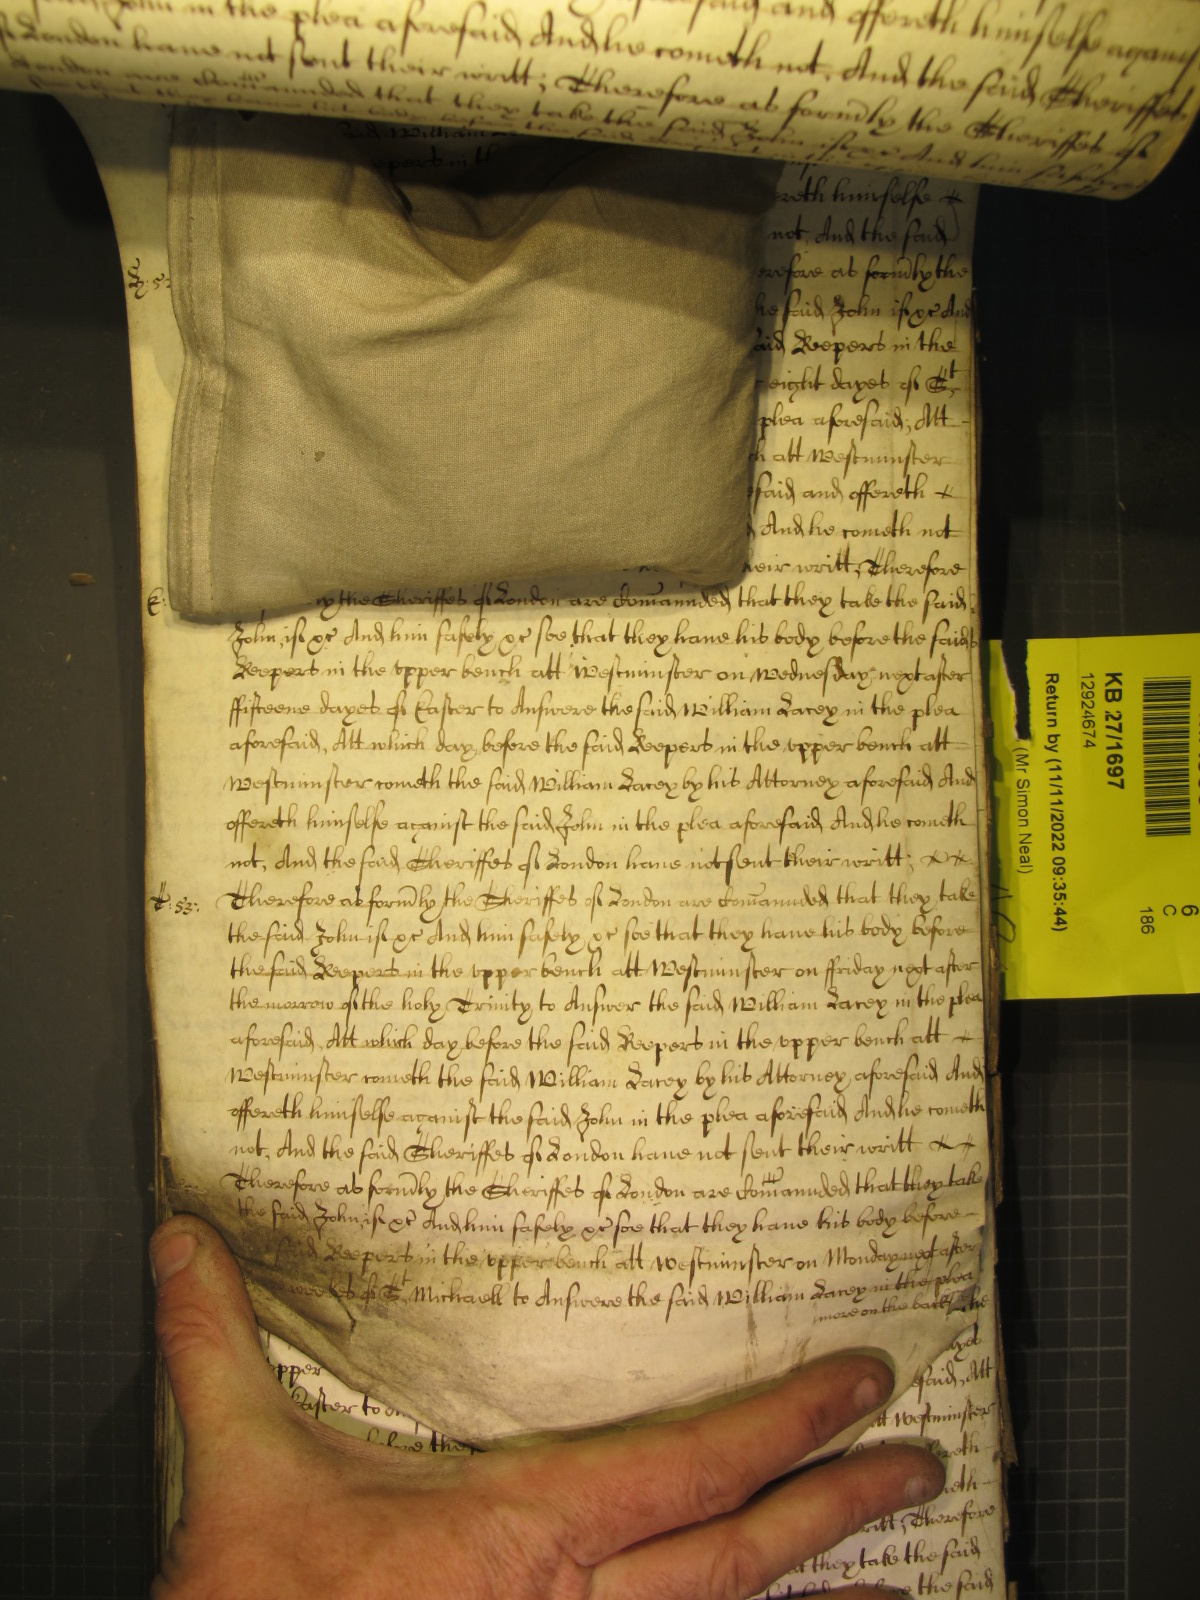 John in the plea aforesaid And he cometh not, And the said Sheriffes
London have not sent their writt; Therefore as formly the Sheriffes of
London are comaunded that they take the said John if &c And him safely
William
epers in th
ereth himselfe
not, And the said
erefore as formly the
he said John if &c And
aid Keepers in the
eight dayes of St
plea aforesaid; Att
h att Westminster
said and offereth
And he cometh not
heir writt; Therefore
y the Sheriffes of London are comaunded that they take the said
John, if &c And him safely &c soe that they have his body before the said
Keepers in the upper bench att Westminster on Wednesday next after
ffifteene dayes of Easter to Answere the said William Lacey in the plea
aforesaid, Att which day, before the said Keepers in the upper bench att
Westminster cometh the said William Lacey by his Attorney aforesaid And
offereth himselfe against the said John in the plea aforesaid And he cometh
not, And the said Sheriffes of London have not sent their writt;
T: 53: Therefore as formly the Sheriffes of London are comaunded that they take
the said John if &c And him safely &c soe that they have his body before
the said Keepers in the upper bench att Westminster on ffriday next after
the morrow of the holy Trinity to Answer the said William Lacey in the plea
aforesaid, Att which day before the said Keepers in the upper bench att
Westminster cometh the said William Lacey by his Attorney aforesaid And
offereth himselfe against the said John in the plea aforesaid And he cometh
not, And the said Sheriffes of London have not sent their writt
Therefore as formly the Sheriffes of London are comaunded that they take
the said John, if &c And him safely &c soe that they have his body before
said Keepers in the upper bench att Westminster on Monday next after
weekes of St Michaell to Answere the said William Lacey in the plea
more on the back
upper
Easter to
before the
said, Att
att Westminster
ereth
meth
writt; Therefore
at they take the said
the said
KB 27/1697
12924674
Return by (11/11/2022 09:35:44)
(Mr Simon Neal)
6
C
186